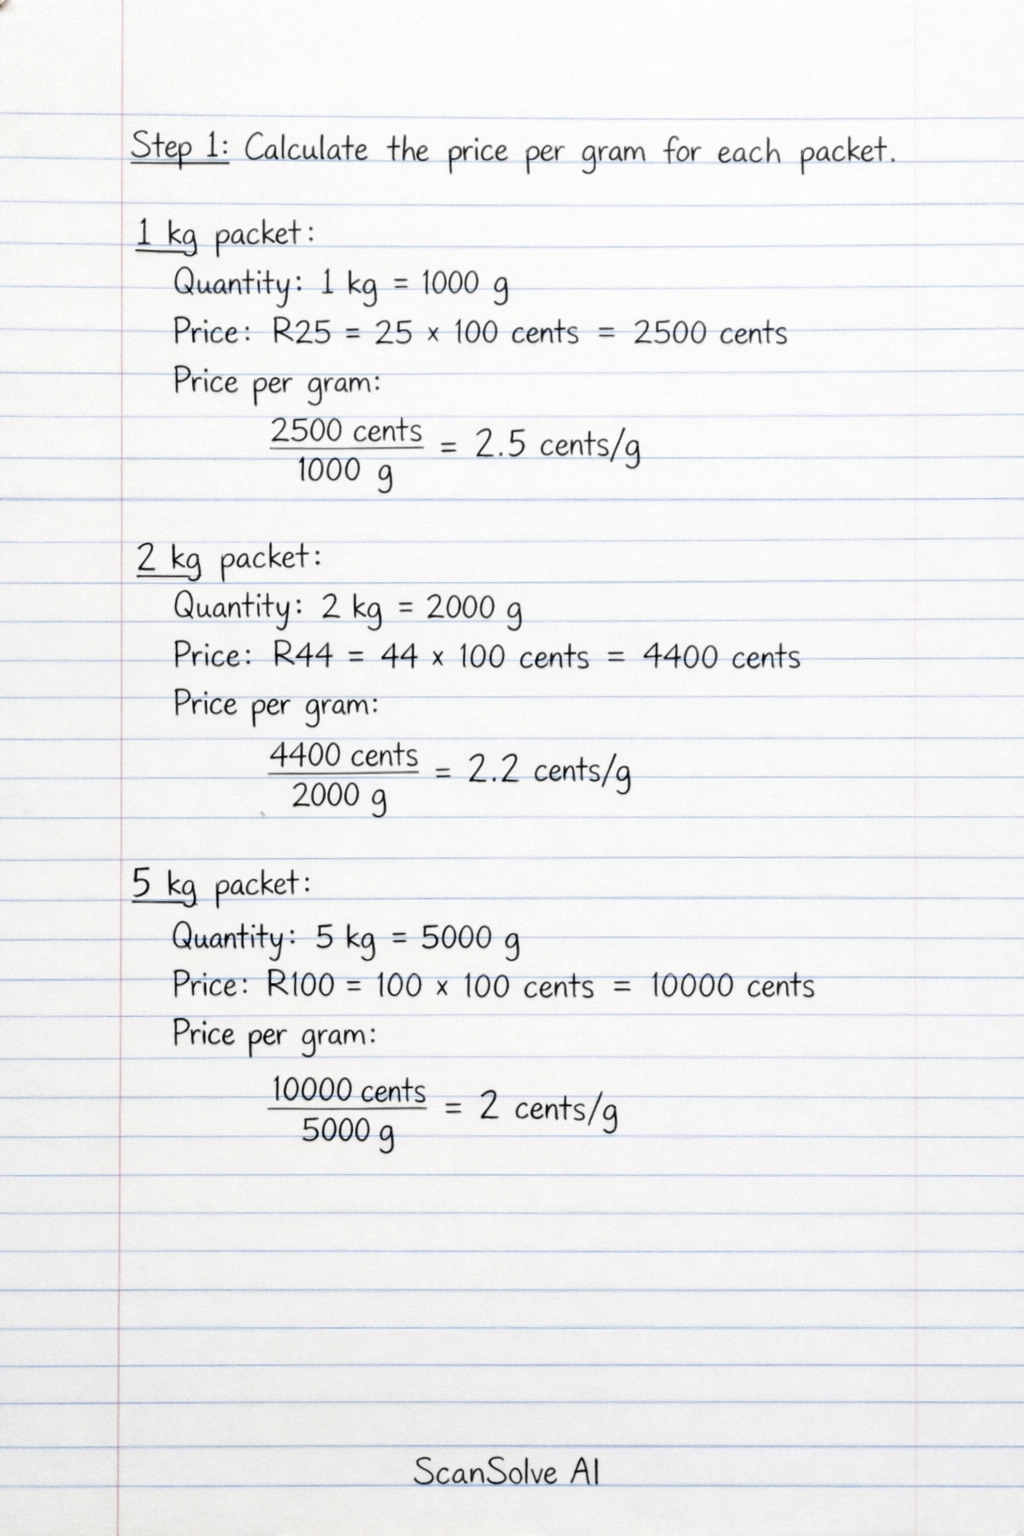 Step 1: Calculate the price per gram for each packet.
1 kg packet:
Quantity: 1 kg = 1000 g
Price: R25 = 25 × 100 cents = 2500 cents
Price per gram:
2500 cents
1000 g
= 2.5 cents/g
2 kg packet:
Quantity: 2 kg = 2000 g
Price: R44 = 44 × 100 cents = 4400 cents
Price per gram:
4400 cents
2000 g
= 2.2 cents/g
5 kg packet:
Quantity: 5 kg = 5000 g
Price: R100 = 100 × 100 cents = 10000 cents
Price per gram:
10000 cents
5000 g
= 2 cents/g
ScanSolve AI